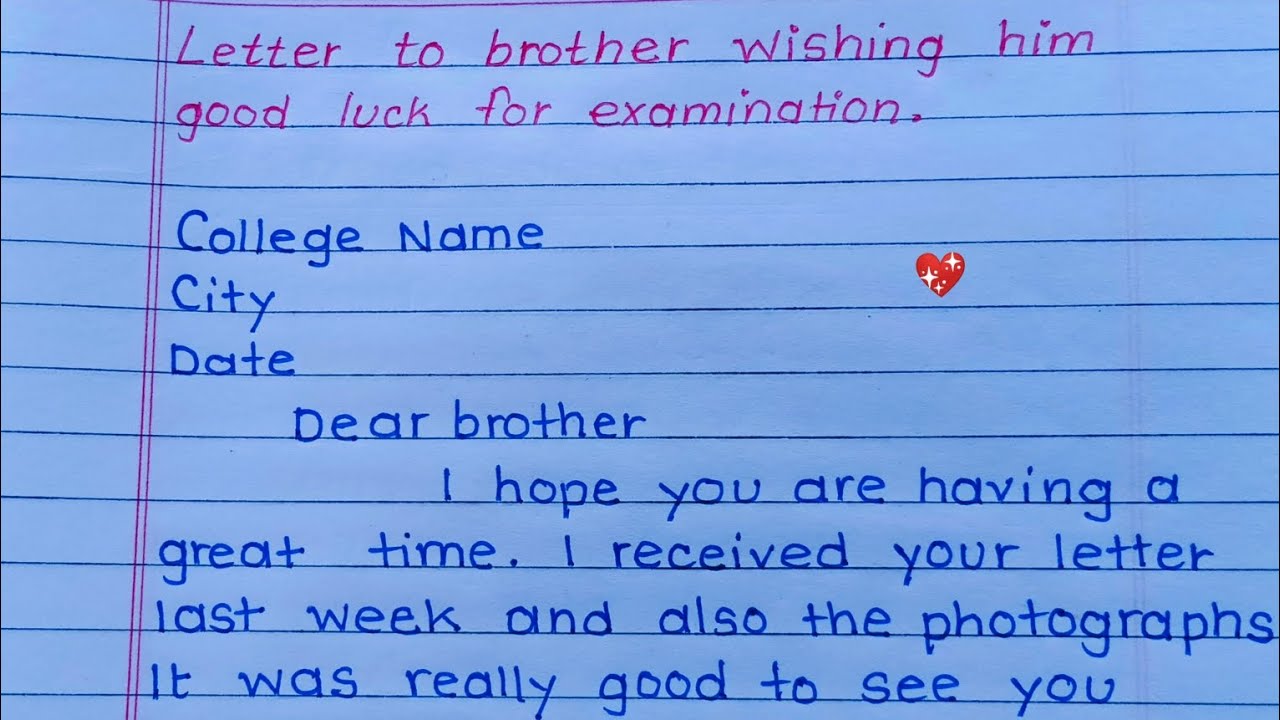 Letter to brother wishing him
good luck for examination.
College Name
City
Date
Dear brother
I hope you are having a
great time. I received your letter
last week and also the photographs
It was really good to see you